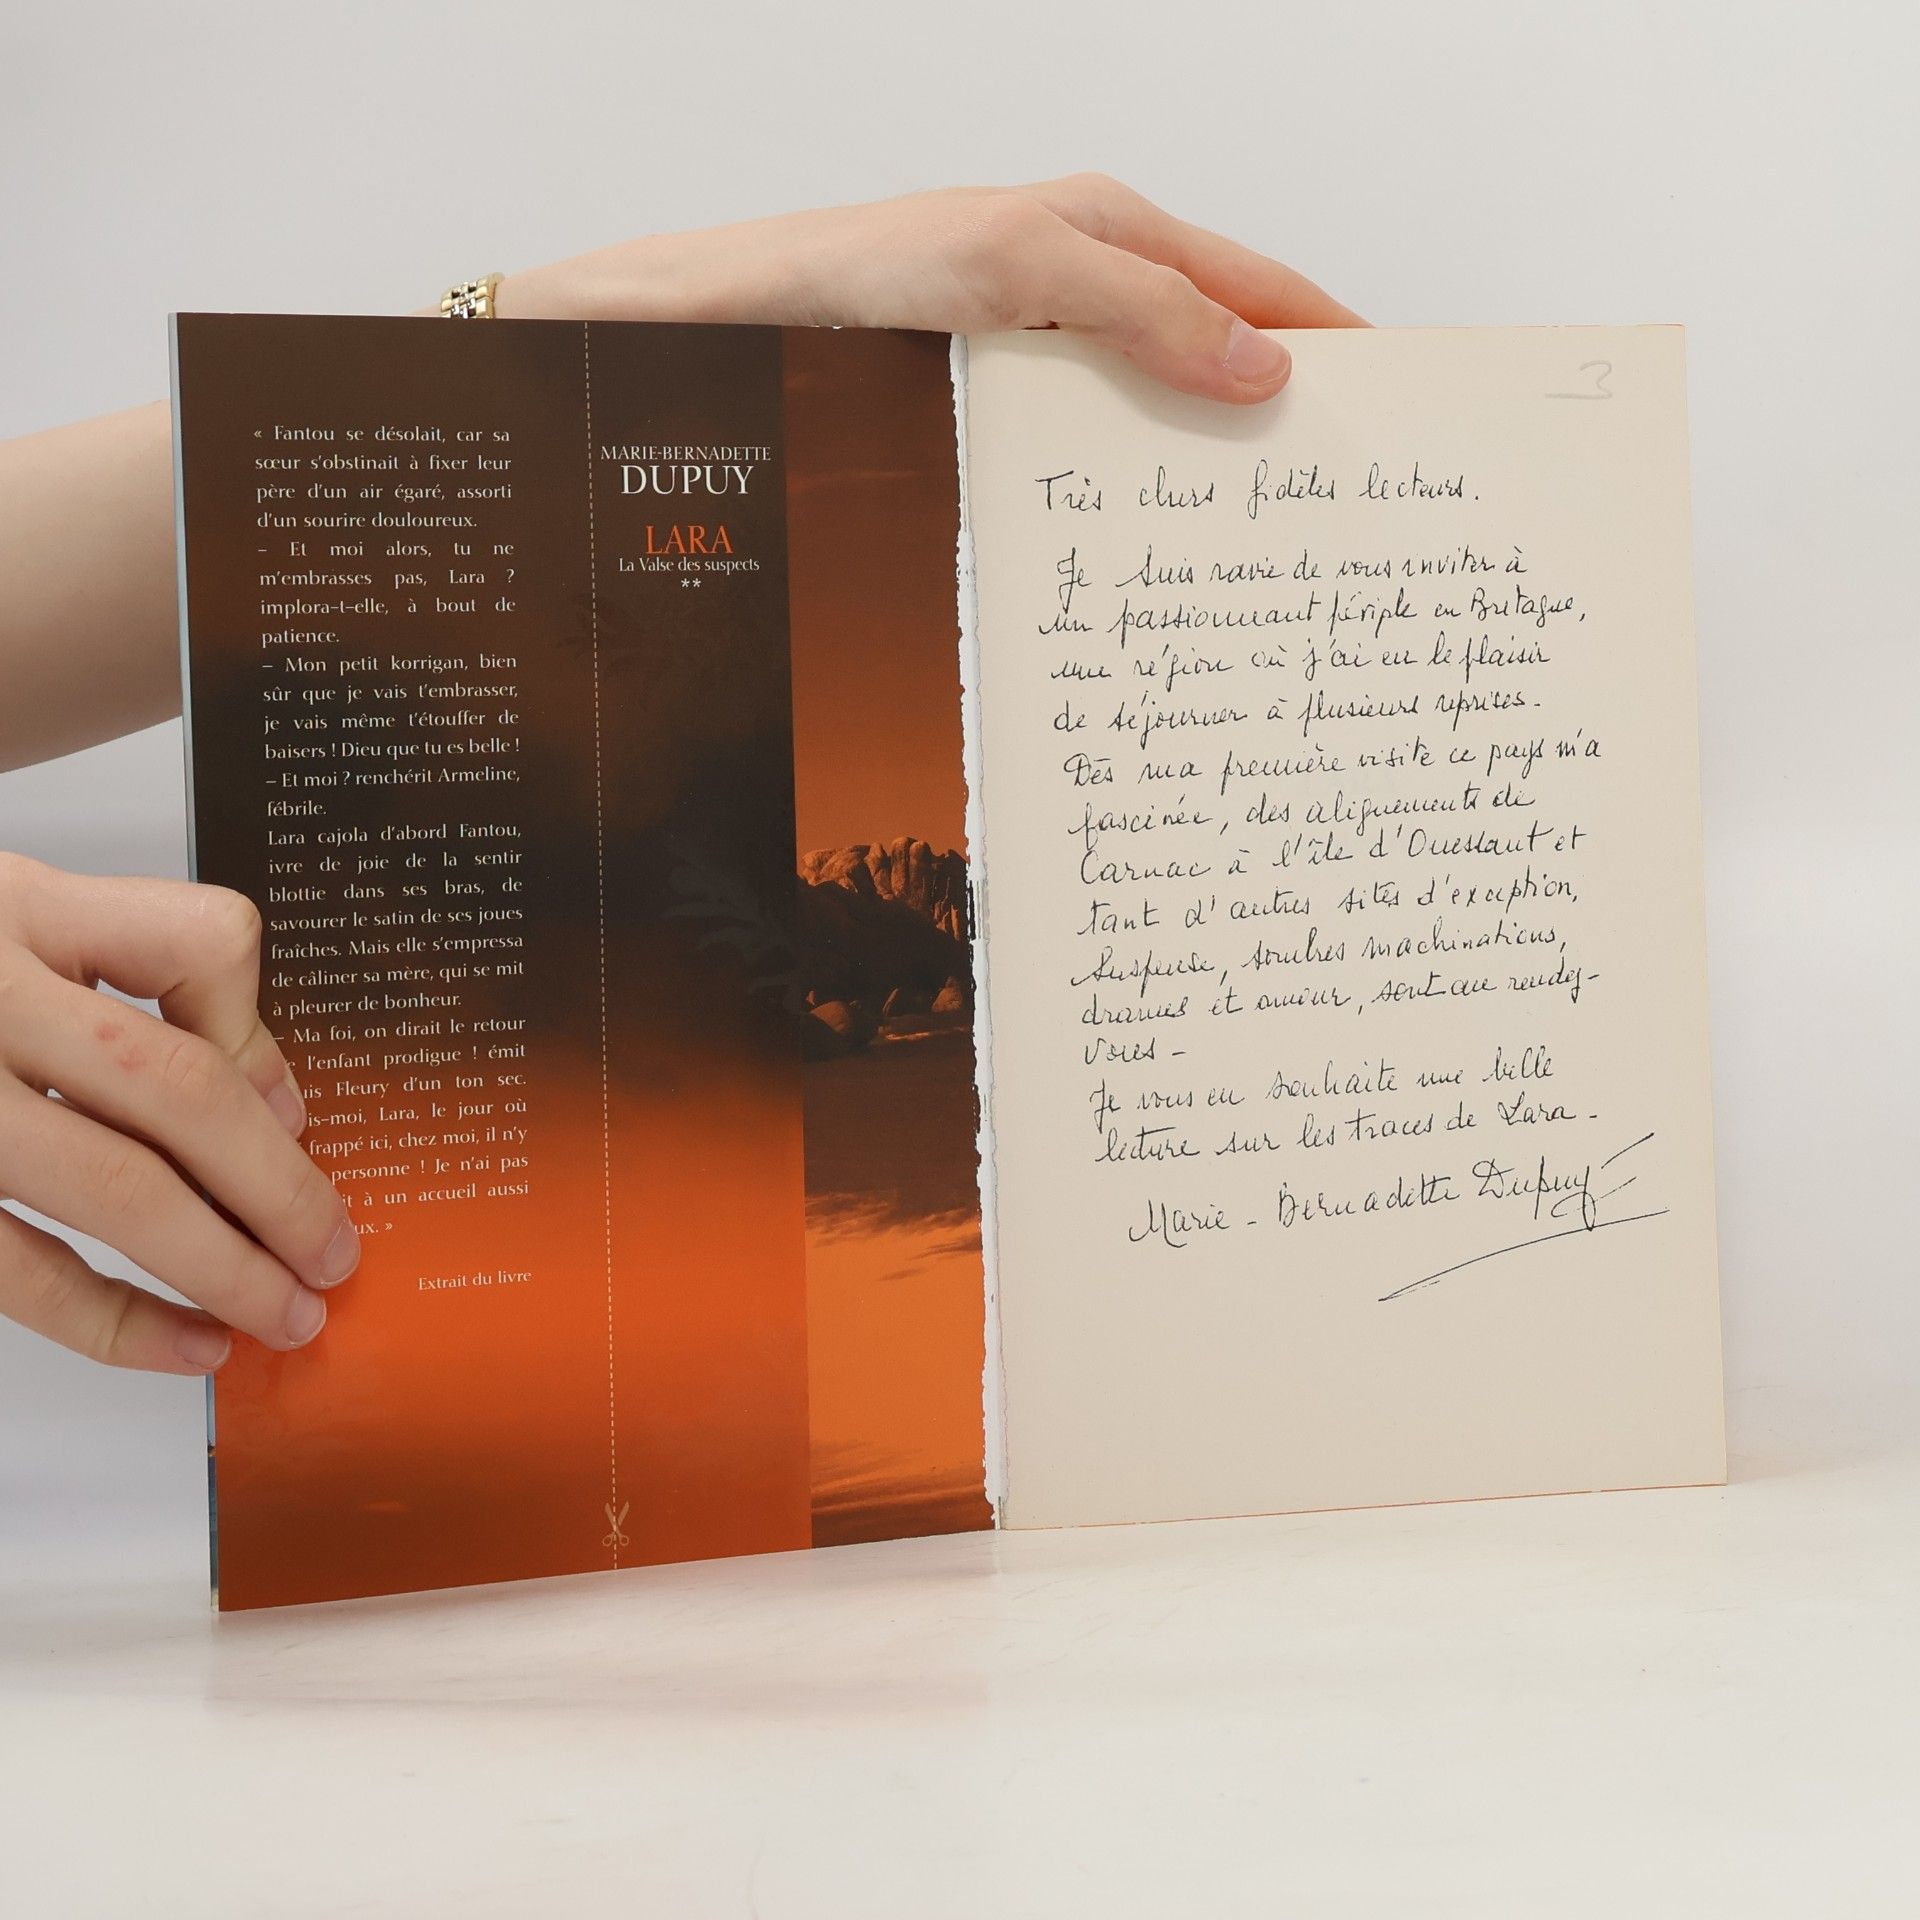 « Fantou se désolait, car sa
sœur s'obstinait à fixer leur
père d'un air égaré, assorti
d'un sourire douloureux.
– Et moi alors, tu ne
m'embrasses pas, Lara ?
implora-t-elle, à bout de
patience.
– Mon petit korrigan, bien
sûr que je vais t'embrasser,
je vais même t'étouffer de
baisers ! Dieu que tu es belle !
– Et moi ? renchérit Armeline,
fébrile.
Lara cajola d'abord Fantou,
ivre de joie de la sentir
blottie dans ses bras, de
savourer le satin de ses joues
fraîches. Mais elle s'empressa
de câliner sa mère, qui se mit
à pleurer de bonheur.
– Ma foi, on dirait le retour
l'enfant prodigue ! émit
Fleury d'un ton sec.
is-moi, Lara, le jour où
frappé ici, chez moi, il n'y
personne ! Je n'ai pas
à un accueil aussi
ux. »
Extrait du livre
MARIE-BERNADETTE
DUPUY
LARA
La Valse des suspects
**
3
Très chers fidèles lecteurs.
Je suis ravie de vous inviter à
un passionnant périple en Bretagne,
une région où j'ai eu le plaisir
de séjourner à plusieurs reprises.
Dès ma première visite ce pays m'a
fascinée, des alignements de
Carnac à l'île d'Ouessant et
tant d'autres sites d'exception,
Suspense, sombres machinations,
drames et amour, sont au rendez-
vous -
Je vous en souhaite une belle
lecture sur les traces de Lara -
Marie-Bernadette Dupuy